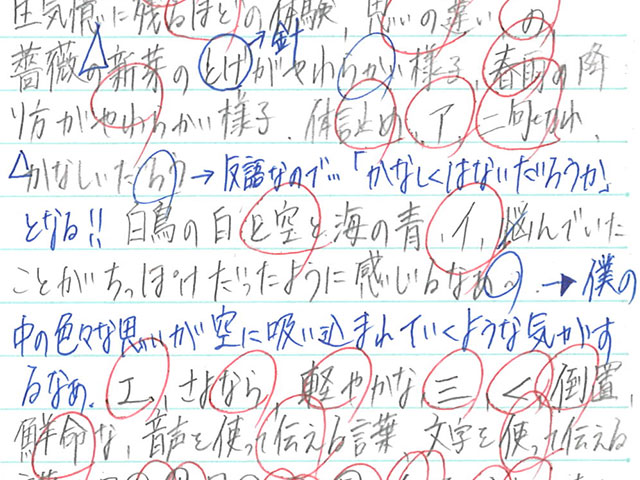 憶に残るほどの体験、思いの違い、の、
→針
薔薇の新芽のとげがやわらかい様子、春雨の降
り方がやわらかい様子、体言止め、ア、二句切れ、
かなしいだろう→反語なので…「かなしくはないだろうか」
となる!!白鳥の白と空と海の青、イ、悩んでいた
ことがちっぽけだったように感じるなあ。→僕の
中の色々な思いが空に吸い込まれていくような気がす
るなぁ。エ、さよなら、軽やかな、三、く、倒置、
鮮命な、音声を使って伝える言葉、文字を使って伝える